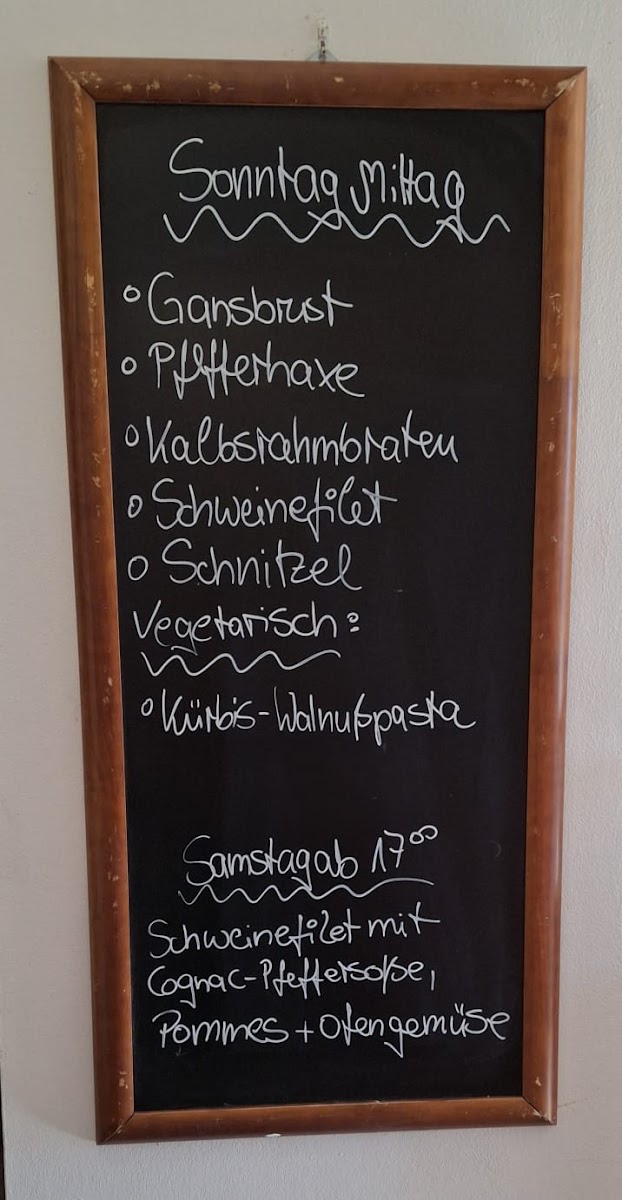 Sonntag Mittag
Gansbrust
Pfefferhaxe
Kalbsrahmbraten
Schweinefilet
Schnitzel
Vegetarisch:
Kürbis-Walnußpasta
Samstag ab 17⁰⁰
Schweinefilet mit
Cognac-Pfeffersoße,
Pommes + Ofengemüse